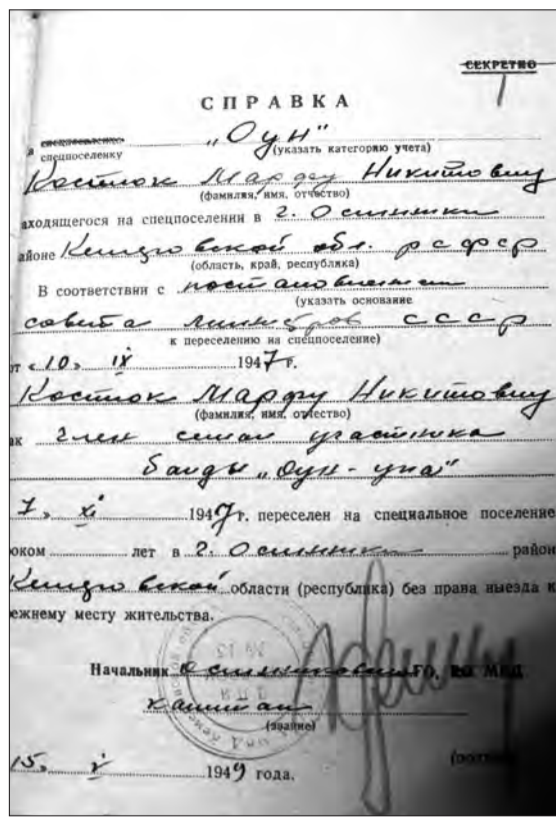 СЕКРЕТНО
СПРАВКА
а спецпоселенца „Оун"
спецпоселенку (указать категорию учета)
Костюк Марфу Никитовну
(фамилия, имя, отчество)
аходящегося на спецпоселении в г. Осинники
айоне Кемеровской обл. РСФСР
(область, край, республика)
В соответствии с постановлением
(указать основание
совета министров СССР
к переселению на спецпоселение)
от „10„ IX 1947 г.
Костюк Марфу Никитовну
(фамилия, имя, отчество)
ак член семьи участника
банды „Оун-упа"
7„ XI 1947 г. переселен на специальное поселение
роком лет в г. Осинники район
Кемеровской области (республика) без права выезда к
ежнему месту жительства.
Начальник Осинниковского ГО, РО МВД
капитан
(звание)
15„ V 1949 года.